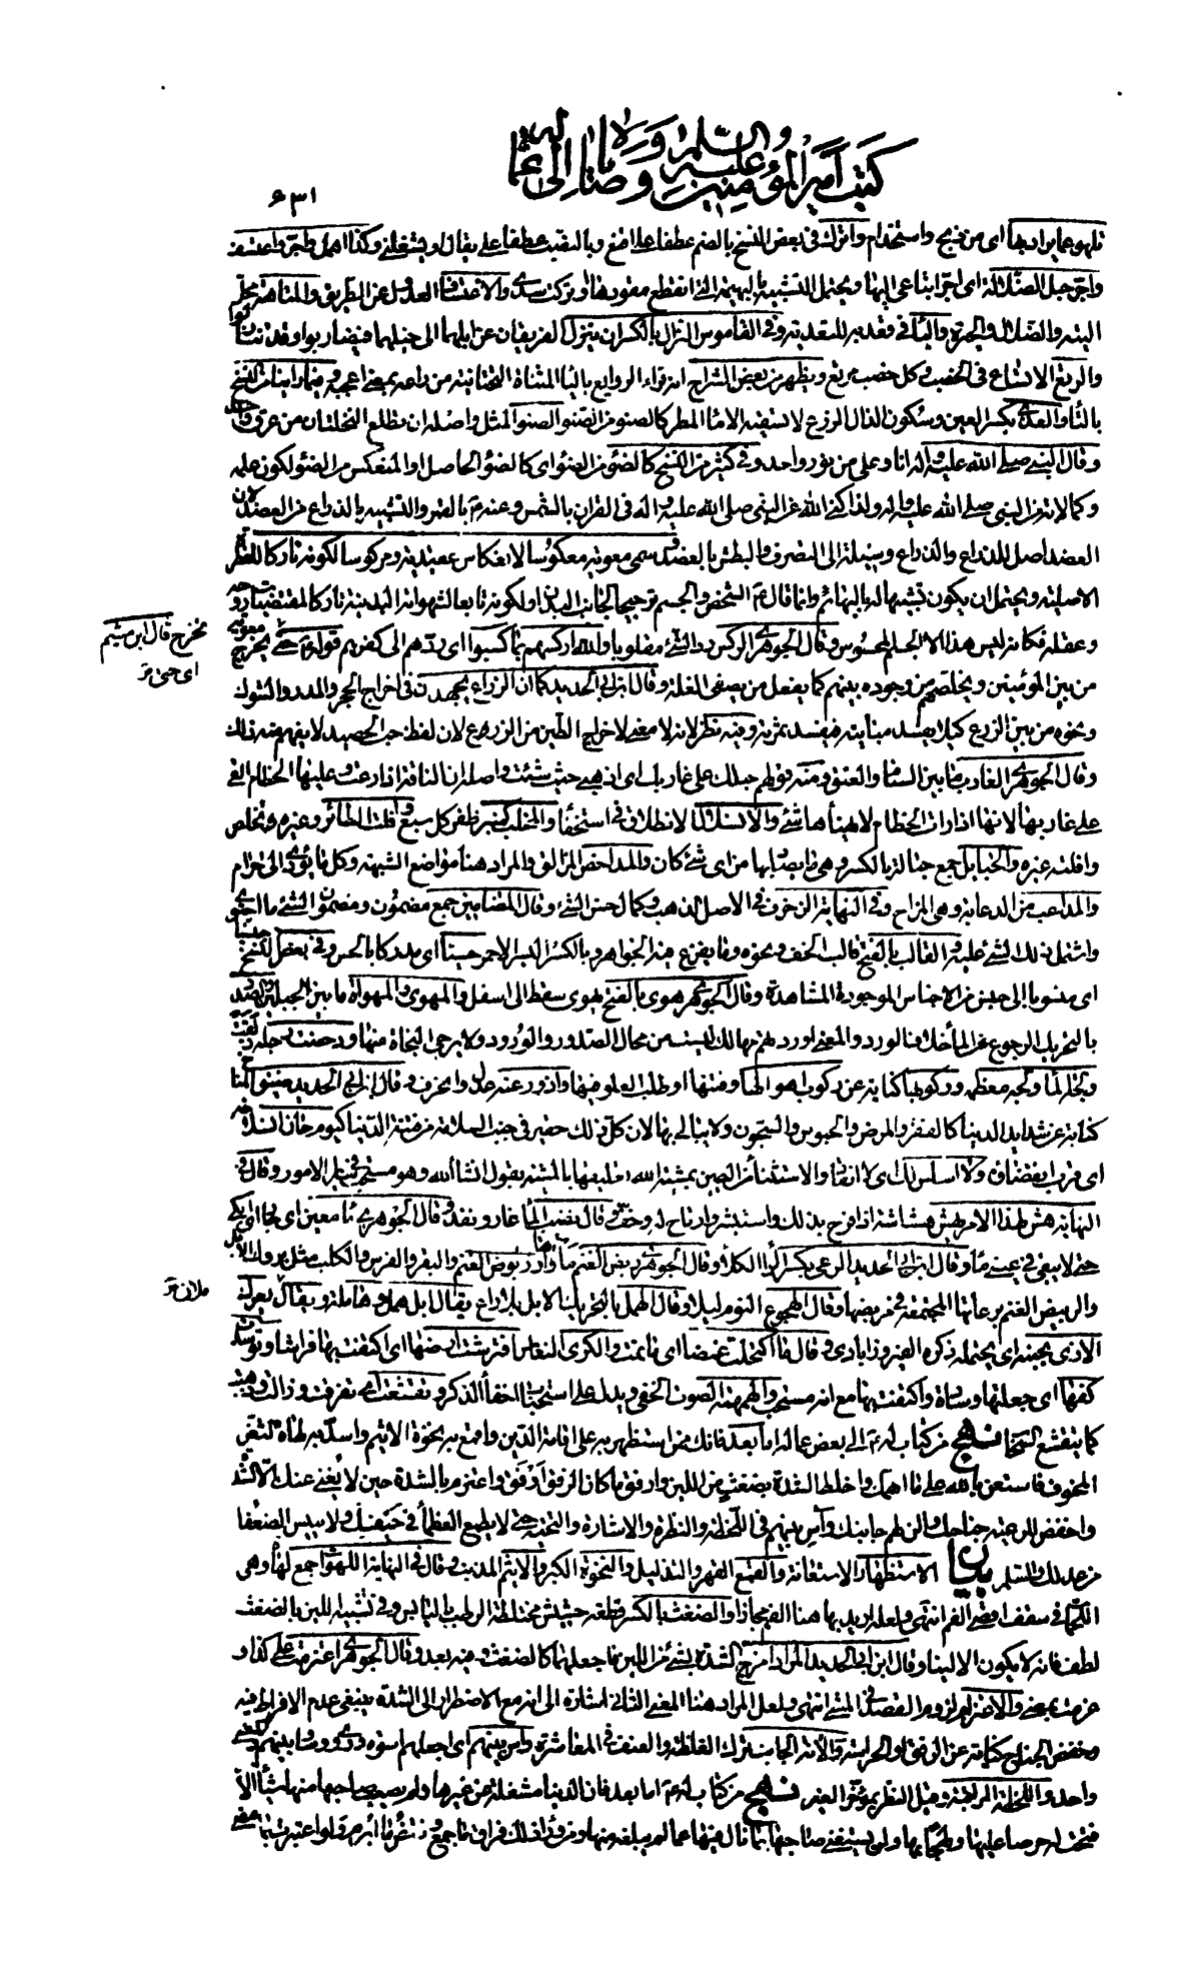 كتب أمير المؤمنين عليه السلام ووصاياه إلى عماله
٦٣١
تلهو عما يراد بها اى من ذبح واستخدام واترك فى بعض النسخ بالضم عطفا على اضغ وبالنصب عطفا على يقال او يشغلنى وكذا اهمل واجر واعتسف
واجر حبل الضلالة اى اجر اتباعى اليها ويحتمل التشبيه بالبهيمة التى انقطع مقودها او تركت سدى والاعتساف العدول عن الطريق والمتاهة محل
التيه والضلال والحيرة والباء فى قعد به للتعدية وفى القاموس النزال بالكسر ان ينزل الفريقان عن ابلهما الى خيلهما فيتضاربوا وقد تنازلوا
والرتع الاتساع فى الخصب وكل خصب مرتع ويظهر من بعض الشراح انه قراء الروايع بالياء المثناة التحتانية من راعه بمعنى اعجبه وفيما راينا من النسخ
بالتاء والعذى بكسر العين وسكون الذال الزرع لا يسقيه الا ماء المطر كالصنو من الصنو الصنو المثل واصله ان تطلع النخلتان من عرق واحد
وقال النبى صلى الله عليه وآله انا وعلى من نور واحد وفى كثير من النسخ كالضوء من الضوء اى كالضوء الحاصل او المنعكس من الضوء لكون علمه
وكمالاته من النبى صلى الله عليه وآله ولذا كنى الله عن النبى صلى الله عليه وآله فى القران بالشمس وعنه ع بالقمر والتشبيه بالذراع من العضد لان
العضد اصل للذراع والذراع وسيلة الى التصرف والبطش بالعضد وسمى معوية معكوسا لانعكاس عقيدته ومركوسا لكونه تاركا للفطرة
الاصلية ويحتمل ان يكون تشبيها له بالبهائم وانما قال ع الشخص والجسم ترجيحا لجانب البدن او لكونه تابعا لشهواته البدنية تاركا لمقتضيات روحه
وعقله فكانه ليس هذا الا الجسم المحسوس وقال الجوهرى الركس رد الشئ مقلوبا والله اركسهم بما كسبوا اى ردهم الى كفرهم قوله ع حتى يخرج معوية
من بين المؤمنين ويخلصهم من وجوده بينهم كما يفعل من يصفى الغلة وقال ابن ابى الحديد كما ان الزراع يجتهدون فى اخراج الحجر والمدر والشوك
ونحوه من بين الزرع كيلا يفسد منابته فيفسد ثمرته وفيه نظر لانه لا معنى لاخراج الطين من الزرع لان لفظ حب الحصيد لا يفهم منه ذلك
وقال الجوهرى الغارب ما بين السنام والعنق ومنه قولهم حبلك على غاربك اى اذهبى حيث شئت واصله ان الناقة اذا رعت وعليها الخطام القى
على غاربها لانها اذا رات الخطام لا يهنأها شئ والانسلال الانطلاق فى استخفاء والمخلب ظفر كل سبع وافلت الطائر وغيره وتخلص
وافلته غيره والحبايل جمع حبالة بالكسر وهى ما يصاد بها من اى شئ كان والمداحض المزالق والمراد هنا مواضع الشبهة وكل ما يؤدى الى حرام
والمداعب من الدعابة وهى المزاح وفى النهاية الزخرف فى الاصل الذهب وكمال حسن الشئ وقال المضامين جمع مضمون ومضمون الشئ ما احتوى
واشتمل ذلك الشئ عليه والقالب بالفتح قالب الخف ونحوه وما يفرغ فيه الجواهر وبالكسر البسر الاحمر حسيا اى مدركا بالحس وفى بعض النسخ جنسيا
اى منسوبا الى جنس من الاجناس الموجودة المشاهدة وقال الجوهرى هوى بالفتح يهوى سقط الى اسفل والمهوى والمهواة ما بين الجبلين والصدر
بالتحريك الرجوع عن الماء خلاف الورد والمعنى اوردهم مهالك ليست من محال الصدور والورود ولا يرجى النجاة منها ودحضت رجله زلقت
ولجة الماء ولجه معظمه وركوبها كناية عن ركوب اهوالها وفتنها او طلب العلو فيها وازور عنه عدل وانحرف وقال ابن ابى الحديد ضيق المناخ
كناية عن شدايد الدنيا كالفقر والمرض والحبوس والسجون ولا يبالى بها لان كل ذلك حقير فى جنب السلامة من فتنة الدنيا كيوم حان انسلاخه
اى قرب انقضاؤه ولا اسلس لك اى لا انقاد والاستثناء من اليمين بمشية الله تعليقها بالمشية بقول انشاء الله وهو مستحب فى ساير الامور وقال فى
النهاية هش لهذا الامر يهش هشاشة اذا فرح بذلك واستبشر وارتاح له وخف وقال نضب الماء غار ونفد وقال الجوهرى ماء معين اى جار اى ابكى
حتى لا يبقى فى عينى ماء وقال ابن ابى الحديد الرعى بكسر الراء الكلاء وقال الجوهرى ربض الغنم ماواها وربوض الغنم والبقر والفرس والكلب مثل بروك الابل
والربيض الغنم برعاتها المجتمعة فى مربضها وقال الهجوع النوم ليلا وقال الهمل بالتحريك الابل بلا راع يقال ابل همل وهاملة ويقال يعرك
الاذى بجنبه اى يحتمله ذكره الفيروزابادى وقال ما اكتحلت غمضا اى ما نمت والكرى النعاس افترشت ارضها اى اكتفت بها فراشا وتوسدت
كفها اى جعلتها وسادة واكتفت بها مع انه مستحب والهمهمة الصوت الخفى ويدل على استحباب اخفاء الذكر وتقشعت اى تفرقت وزالت وذهبت
كما يتقشع السحاب نهج من كتاب له ع الى بعض عماله اما بعد فانك ممن استظهر به على اقامة الدين واقمع به نخوة الاثيم واسد به لهاة الثغر
المخوف فاستعن بالله على ما اهمك واخلط الشدة بضغث من اللين وارفق ما كان الرفق ارفق واعتزم بالشدة حين لا يغنى عنك الا الشدة
واخفض للرعية جناحك والن لهم جانبك وآس بينهم فى اللحظة والنظرة والاشارة والتحية حتى لا يطمع العظماء فى حيفك ولا ييأس الضعفاء
من عدلك والسلم بيان الاستظهار الاستعانة والقمع القهر والتذليل والنخوة الكبر والاثيم المذنب وقال فى النهاية اللهوات جمع لهاة وهى
اللحمات فى سقف اقصى الفم انتهى ولعله اريد بها هنا الفم مجازا والضغث بالكسر قطعة حشيش مختلطة الرطب باليابس وفى تشبيه اللين بالضغث
لطف فانه لا يكون الا لينا وقال ابن ابى الحديد المراد مزج الشدة بشئ من اللين فاجعلها كالضغث وفيه بعد وقال الجوهرى اعتزمت على كذا و
عزمت بمعنى والاعتزام لزوم القصد فى المشى انتهى ولعل المراد هنا المعنى الثانى اشارة الى انه مع الاضطرار الى الشدة ينبغى عدم الافراط فيه
وخفض الجناح كناية عن الرفق او الحراسة والانة الجانب ترك الغلظة والعنف فى المعاشرة وآس بينهم اى اجعلهم اسوة وروى وساو بينهم والمعنى
واحد واللحظة المراقبة وقيل النظر بمؤخر العين نهج من كتاب له ع اما بعد فان الدنيا مشغلة عن غيرها ولم يصب صاحبها منها شيئا الا
فتحت له حرصا عليها ولهجا بها ولن يستغنى صاحبها بما نال فيها عما لم يبلغه منها ومن وراء ذلك فراق ما جمع ونقض ما ابرم ولو اعتبرت بما مضى
يخرج قال ابن ميثم
اى حتى يخرج